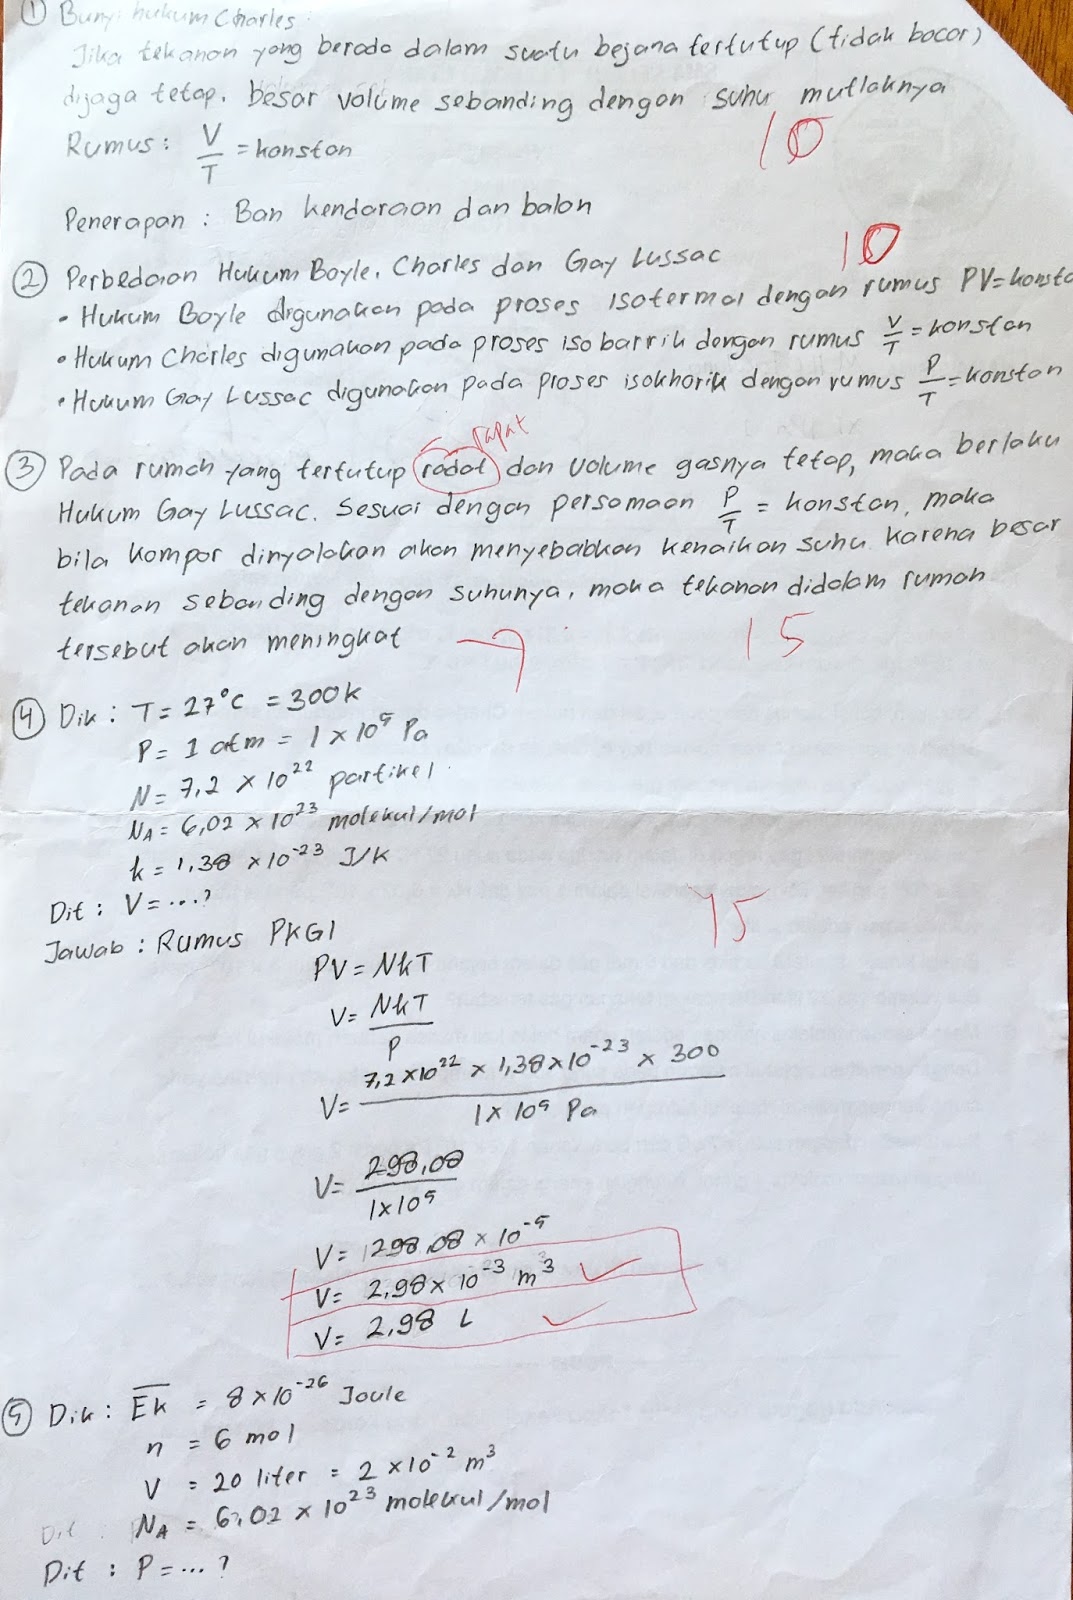 ① Bunyi hukum Charles:
Jika tekanan yang berada dalam suatu bejana tertutup (tidak bocor)
dijaga tetap, besar volume sebanding dengan suhu mutlaknya
Rumus : V/T = konstan
10
Penerapan : Ban kendaraan dan balon
② Perbedaan Hukum Boyle, Charles dan Gay Lussac
10
• Hukum Boyle digunakan pada proses isotermal dengan rumus PV = konsta
• Hukum Charles digunakan pada proses isobarrik dengan rumus V/T = konstan
• Hukum Gay Lussac digunakan pada proses isokhorik dengan rumus P/T = konstan
rapat
③ Pada rumah yang tertutup radat dan volume gasnya tetap, maka berlaku
Hukum Gay Lussac. Sesuai dengan persamaan P/T = konstan, maka
bila kompor dinyalakan akan menyebabkan kenaikan suhu. Karena besar
tekanan sebanding dengan suhunya, maka tekanan didalam rumah
tersebut akan meningkat
15
④ Dik : T = 27°C = 300 k
P = 1 atm = 1 × 10⁵ Pa
N = 7,2 × 10²² partikel
NA = 6,02 × 10²³ molekul/mol
k = 1,38 × 10⁻²³ J/K
Dit : V = ...?
Jawab : Rumus PKGI
15
PV = NkT
V = NkT/P
V = 7,2 × 10²² × 1,38 × 10⁻²³ × 300 / 1 × 10⁵ Pa
V = 298,08 / 1 × 10⁵
V = 298,08 × 10⁻⁵
V = 2,98 × 10⁻³ m³ ✓
V = 2,98 L ✓
⑤ Dik : Ek = 8 × 10⁻²⁶ Joule
n = 6 mol
V = 20 liter = 2 × 10⁻² m³
NA = 6,02 × 10²³ molekul/mol
Dit : P = ... ?